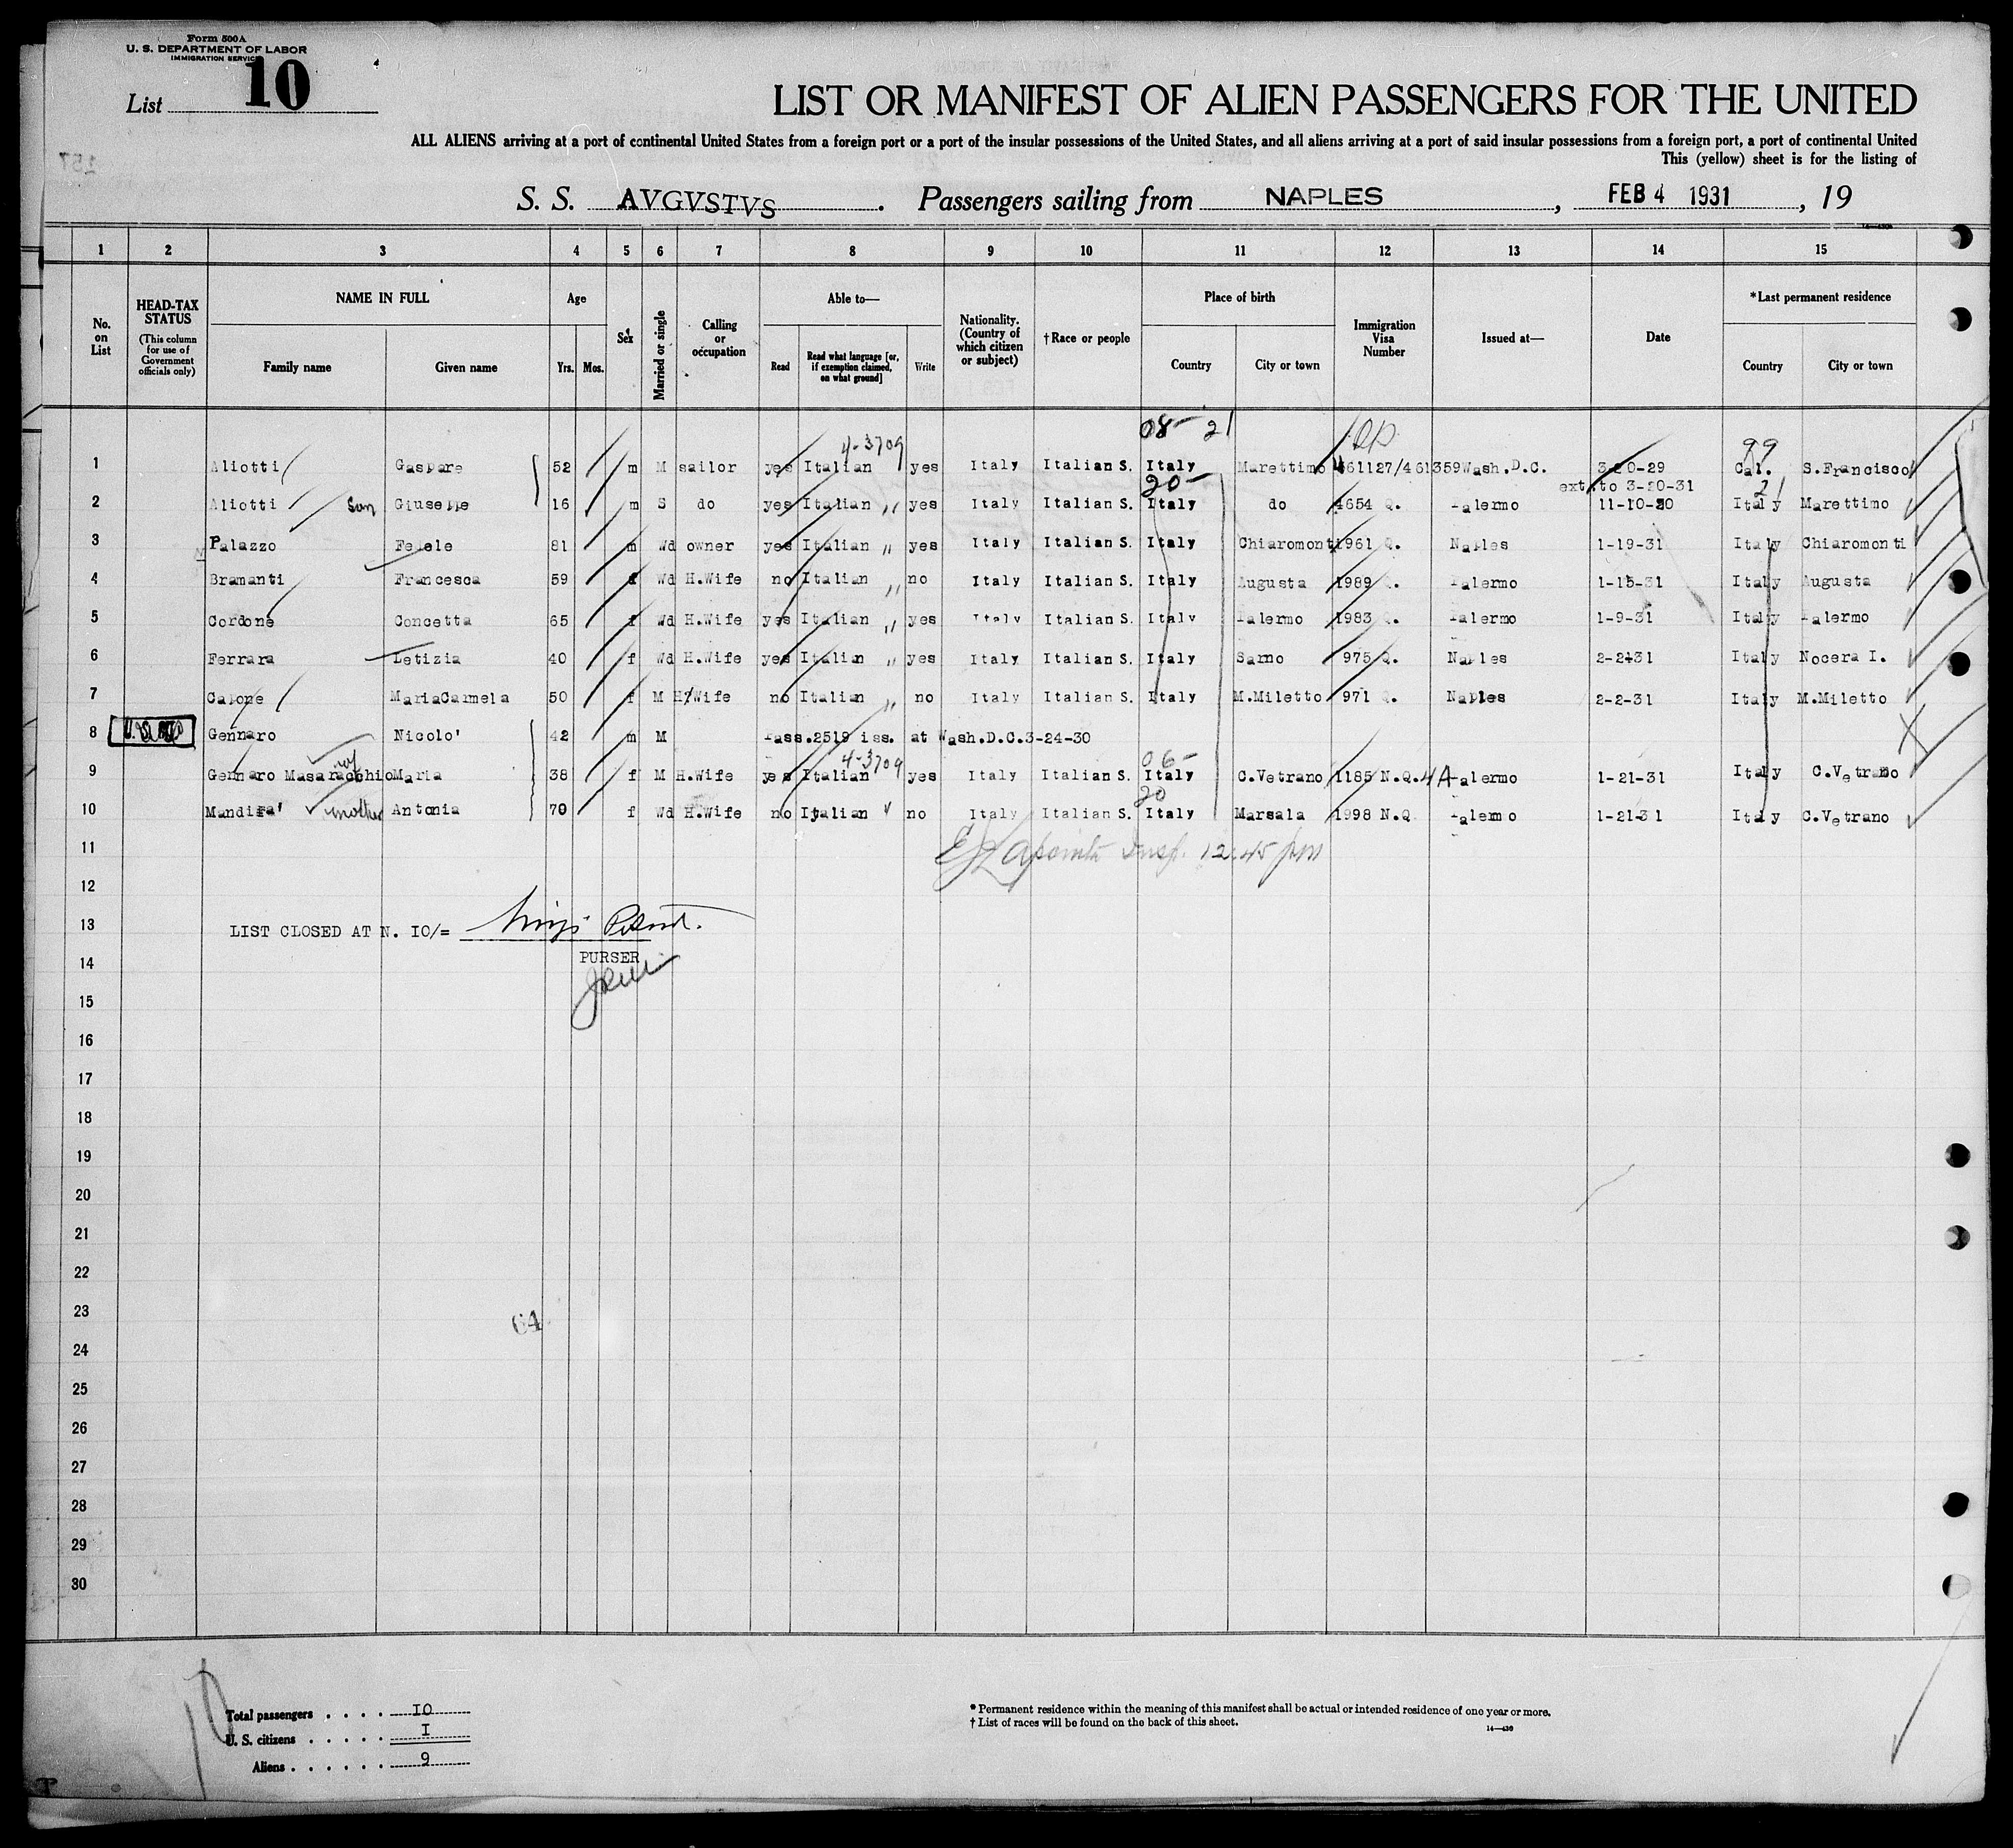 Form 500 A
U. S. DEPARTMENT OF LABOR
IMMIGRATION SERVICE
List 10
LIST OR MANIFEST OF ALIEN PASSENGERS FOR THE UNITED
ALL ALIENS arriving at a port of continental United States from a foreign port or a port of the insular possessions of the United States, and all aliens arriving at a port of said insular possessions from a foreign port, a port of continental United
This (yellow) sheet is for the listing of
S. S. AVGVSTVS. Passengers sailing from NAPLES, FEB 4 1931, 19
1 2 3 4 5 6 7 8 9 10 11 12 13 14 15
No. on List
HEAD-TAX STATUS
(This column for use of Government officials only)
NAME IN FULL
Family name Given name
Age
Yrs. Mos.
Sex
Married or single
Calling or occupation
Able to—
Read
Read what language [or, if exemption claimed, on what ground]
Write
Nationality. (Country of which citizen or subject)
†Race or people
Place of birth
Country City or town
Immigration Visa Number
Issued at—
Date
*Last permanent residence
Country City or town
08- 21
4-3709 99
1 Aliotti Gaspare 52 m M sailor yes Italian yes Italy Italian S. Italy Marettimo 461127/461359 Wash.D.C. 3-20-29 Cal. S.Francisco
20- ext. to 3-20-31 21
2 Aliotti Son Giuseppe 16 m S do yes Italian " yes Italy Italian S. Italy do 4654 Q. Palermo 11-10-30 Italy Marettimo
3 Palazzo Fedele 81 m Wd owner yes Italian " yes Italy Italian S. Italy Chiaromonti 1961 Q. Naples 1-19-31 Italy Chiaromonti
4 Bramanti Francesca 59 f Wd H.Wife no Italian " no Italy Italian S. Italy Augusta 1989 Q. Palermo 1-15-31 Italy Augusta
5 Cordone Concetta 65 f Wd H.Wife yes Italian " yes Italy Italian S. Italy Palermo 1983 Q. Palermo 1-9-31 Italy Palermo
6 Ferrara Letizia 40 f Wd H.Wife yes Italian " yes Italy Italian S. Italy Sarno 975 Q. Naples 2-2-31 Italy Nocera I.
7 Calone MariaCarmela 50 f M H.Wife no Italian " no Italy Italian S. Italy M.Miletto 971 Q. Naples 2-2-31 Italy M.Miletto
8 Gennaro Nicolo' 42 m M Pass.2519 iss. at Wash.D.C.3-24-30
4-3709 06-
9 Gennaro Masaracchio Maria 38 f M H.Wife yes Italian yes Italy Italian S. Italy C.Vetrano 1185 N.Q. 4A Palermo 1-21-31 Italy C.Vetrano
20
10 Mandira' mother Antonia 70 f Wd H.Wife no Italian no Italy Italian S. Italy Marsala 1998 N.Q Palermo 1-21-31 Italy C.Vetrano
11 Insp. 12.45 pm
12
13 LIST CLOSED AT N. IO/=
PURSER
14
15
16
17
18
19
20
21
22
23
64
24
25
26
27
28
29
30
Total passengers . . . . IO
U. S. citizens . . . . . I
Aliens . . . . . . 9
* Permanent residence within the meaning of this manifest shall be actual or intended residence of one year or more.
† List of races will be found on the back of this sheet.
14—430